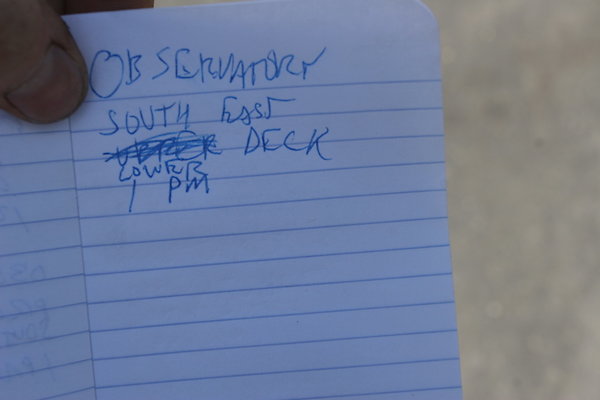 OBSERVATORY
SOUTH EAST
DECK
LOWER
1 PM